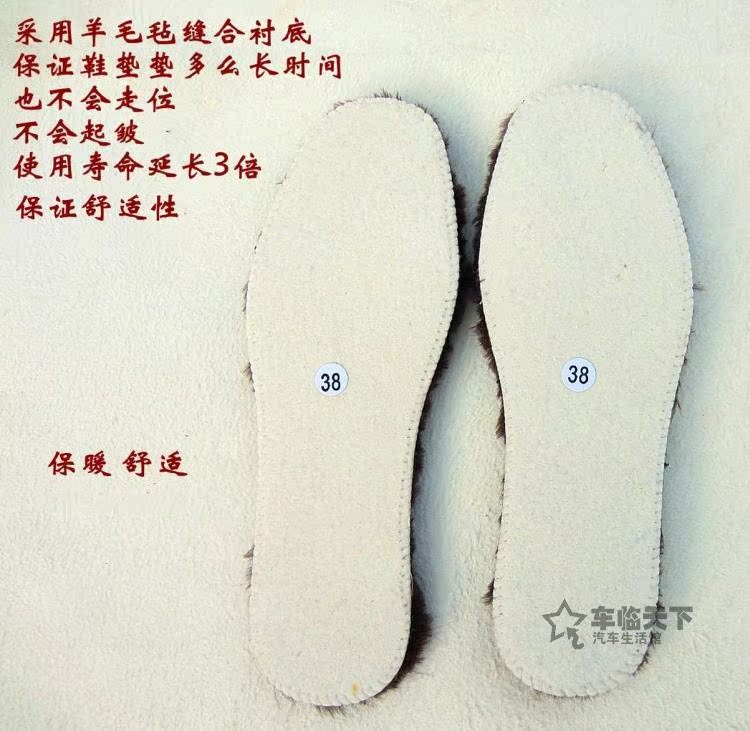 采用羊毛毡缝合衬底
保证鞋垫垫多么长时间
也不会走位
不会起皱
使用寿命延长3倍
保证舒适性
38
38
保暖 舒适
车临天下
汽车生活馆